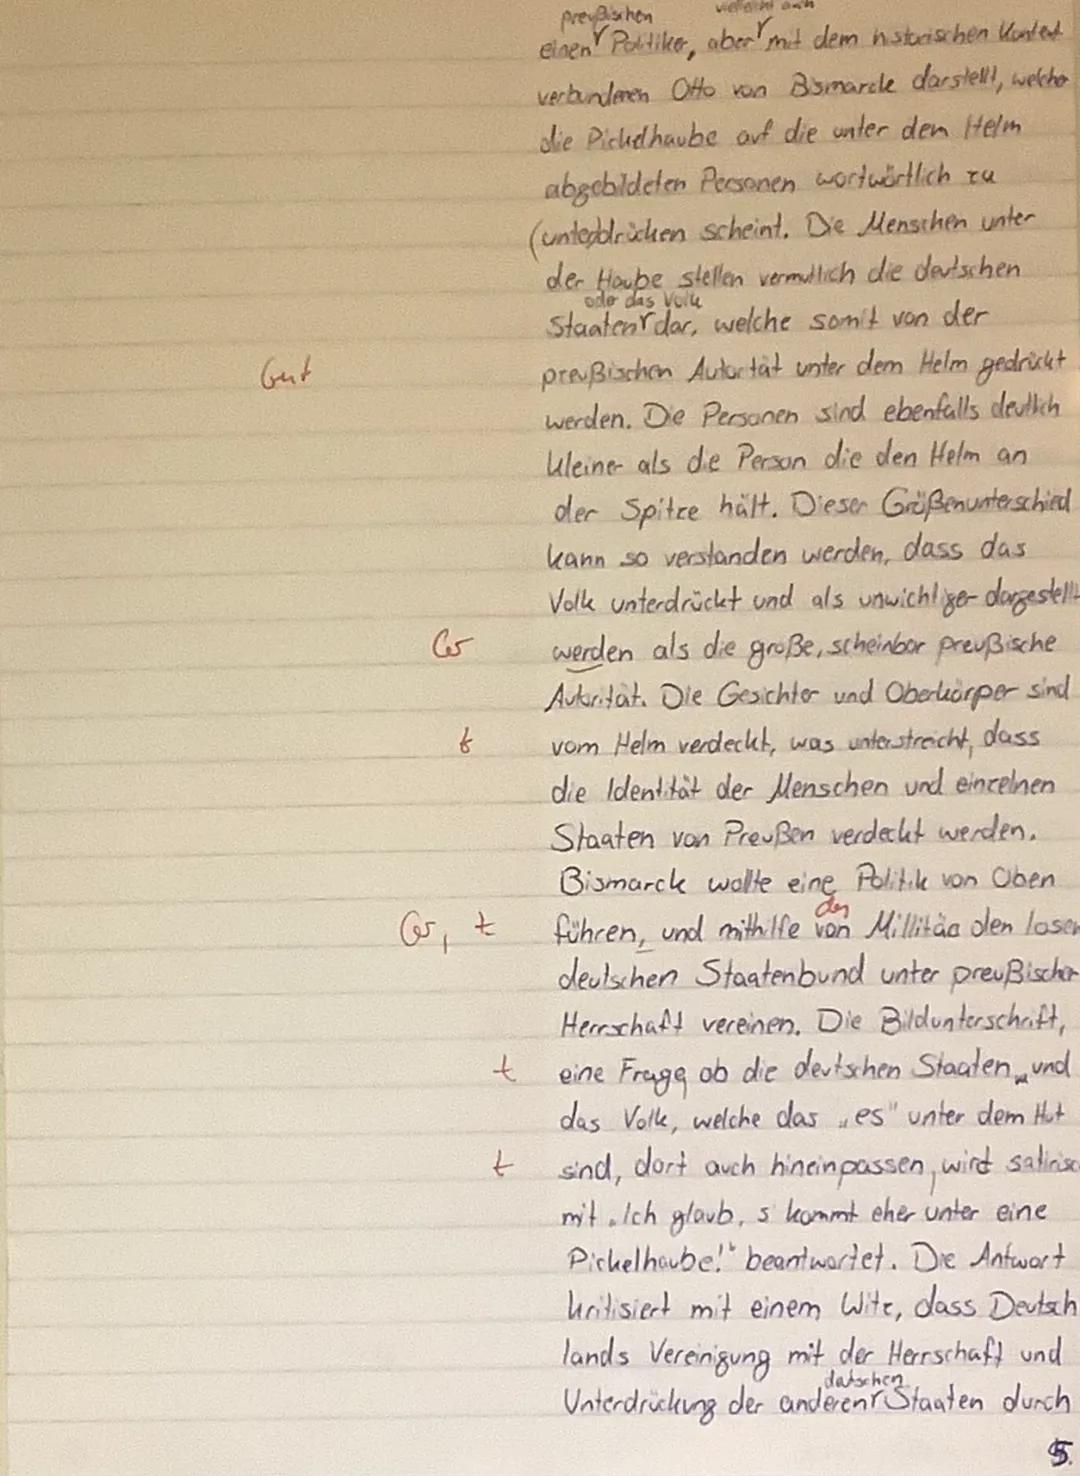 preußischen vielleicht auch
einen Politiker, aber mit dem historischen Kontext
verbundenen Otto von Bismarck darstellt, welcher
die Pickelhaube auf die unter dem Helm
abgebildeten Personen wortwörtlich zu
(unterdrücken scheint. Die Menschen unter
der Haube stellen vermutlich die deutschen
oder das Volk
Staaten dar, welche somit von der
Gut preußischen Autortät unter dem Helm gedrückt
werden. Die Personen sind ebenfalls deutlich
kleiner als die Person die den Helm an
der Spitze hält. Dieser Größenunterschied
kann so verstanden werden, dass das
Volk unterdrückt und als unwichtiger dargestellt
werden als die große, scheinbar preußische
Autorität. Die Gesichter und Oberkörper sind
t vom Helm verdeckt, was unterstreicht, dass
die Identität der Menschen und einzelnen
Staaten von Preußen verdeckt werden.
Bismarck wollte eine Politik von Oben
des
t führen, und mithilfe von Millitär den losen
deutschen Staatenbund unter preußischer
Herrschaft vereinen. Die Bildunterschrift,
t eine Frage, ob die deutschen Staaten und
das Volk, welche das „es" unter dem Hut
t sind, dort auch hineinpassen, wird satirisc
mit „Ich glaub, s kommt eher unter eine
Pickelhaube!" beantwortet. Die Antwort
kritisiert mit einem Witz, dass Deutsch
lands Vereinigung mit der Herrschaft und
deutschen
Unterdrückung der anderen Staaten durch
5.